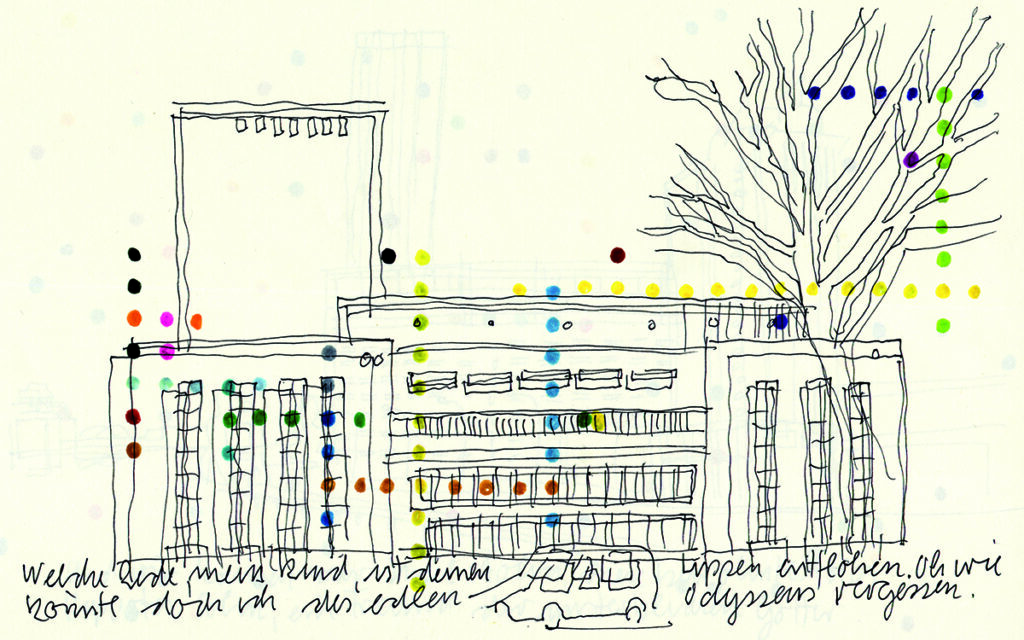 Welche Rede, mein Kind, ist deinen Lippen entflohen. Oh wie
könnte doch ich, des edlen Odysseus vergessen.